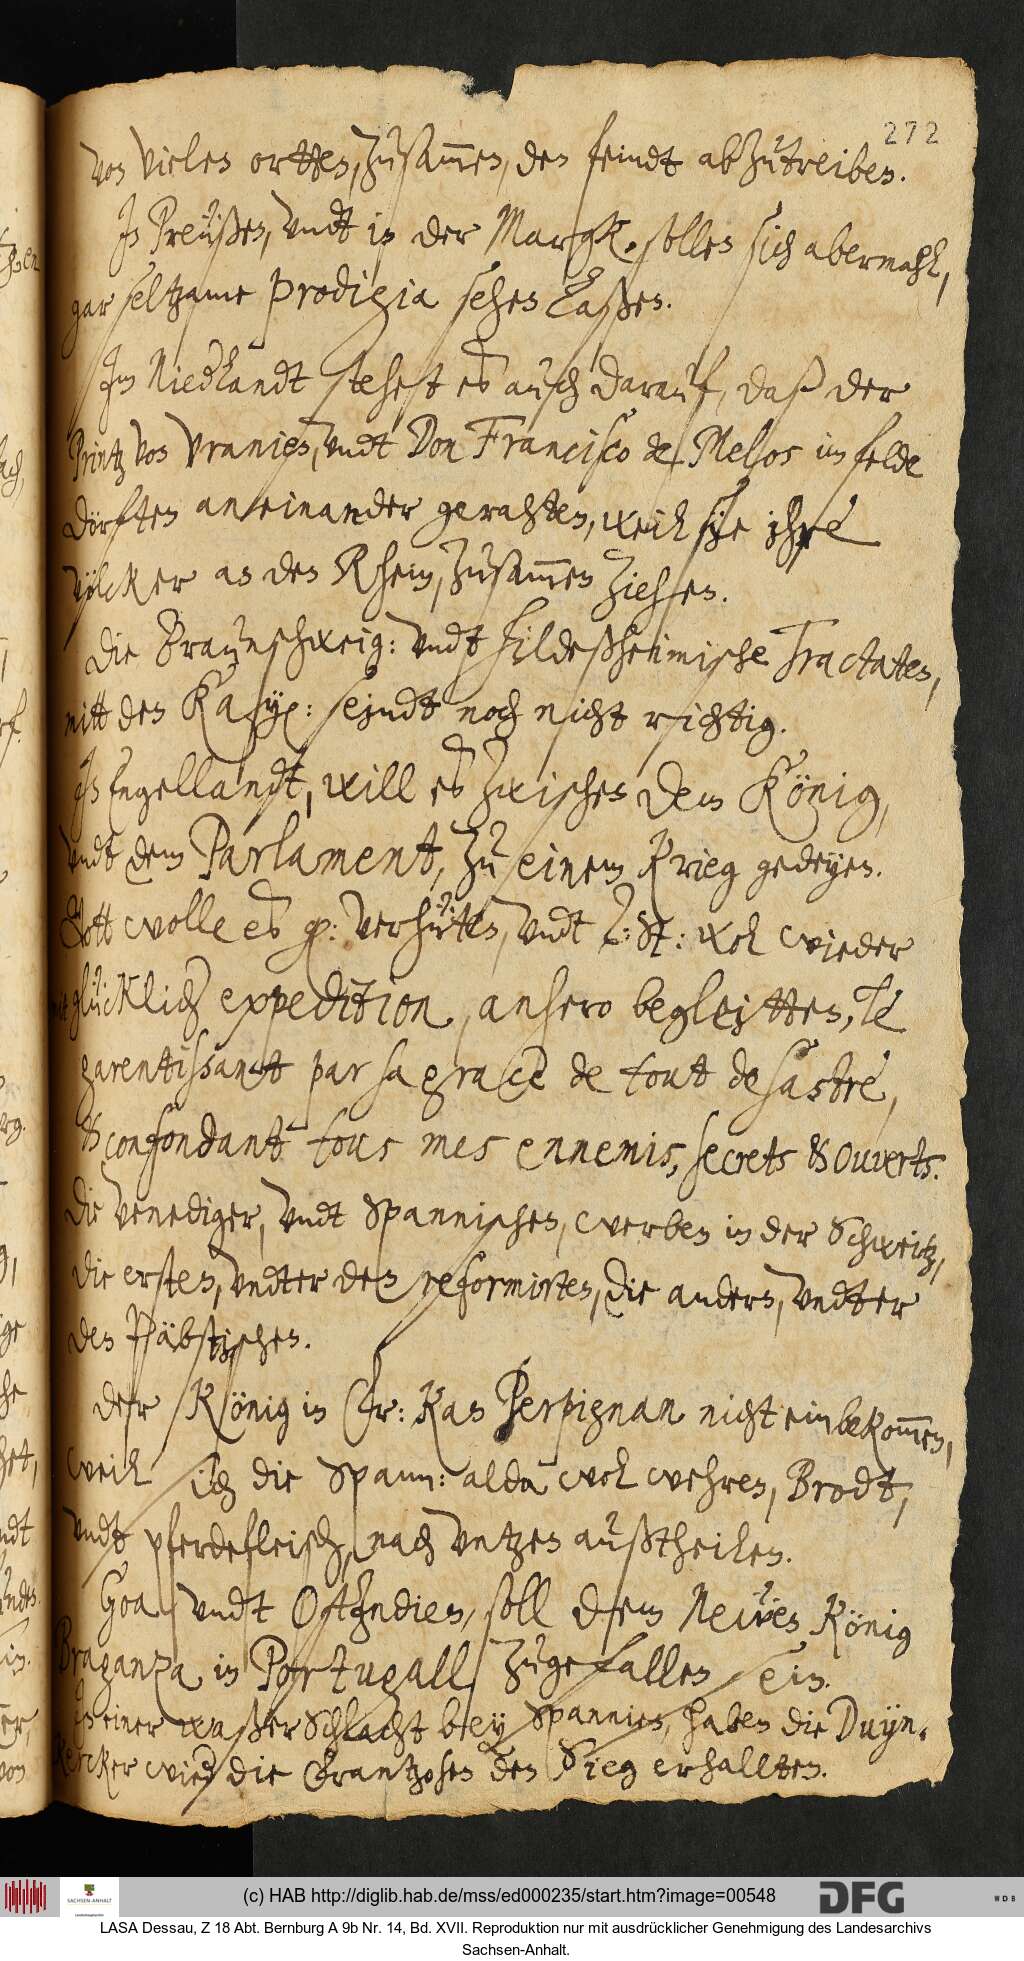 272
von vielen ortten, zusammen, den feindt abzutreiben.
In Preüßen, vndt in der Margk. sollen sich abermahl,
gar seltzame prodigia sehen laßen.
Im Niederlandt stehet es auch darauf, daß der
Printz von Vranien, vndt Don Francisco de Melos im felde
dörften aneinander gerahten, weil sie ihre
völcker an den Rhein, zusammen ziehen.
Die Braunschweig: vndt Hildeßheimische Tractaten,
mitt den Kayß: seindt noch nicht richtig.
In Engellandt, will es zwischen dem König,
vndt dem Parlament, zu einem Krieg gedeyen.
Gott wolle es gn: verhütten, vndt L: St: wol wieder
mit glücklich expedition, anhero begleitten, le
garentissant par sa grace de tout desastre,
& confondant tous mes ennemis, secrets & ouverts.
Die Venediger, vndt Spannischen, werben in der Schweitz,
die ersten, vndter den reformirten, die andern, vndter
den Päbstischen.
Der König in Fr: kan Perpignan nicht einbekommen,
weil sich die Spann: alda wol wehren, Brodt,
vndt pferdefleisch, nach vntzen außtheilen.
Goa vndt OstIndien, soll dem Neüen König
Braganza in Portugall zugefallen sein.
In einer waßerschlacht bey Spannien, haben die Duyn-
kercker wieder die Frantzosen den Sieg erhallten.
(c) HAB http://diglib.hab.de/mss/ed000235/start.htm?image=00548
SACHSEN-ANHALT
DFG
WDB
LASA Dessau, Z 18 Abt. Bernburg A 9b Nr. 14, Bd. XVII. Reproduktion nur mit ausdrücklicher Genehmigung des Landesarchivs
Sachsen-Anhalt.